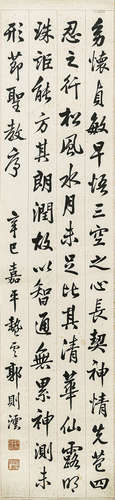 幼懷貞敏早悟三空之心長契神情先苞四
忍之行松風水月未足比其清華仙露明
珠詎能方其朗潤故以智通無累神測未
形節聖教序 辛巳嘉平蟄雲郭則澐